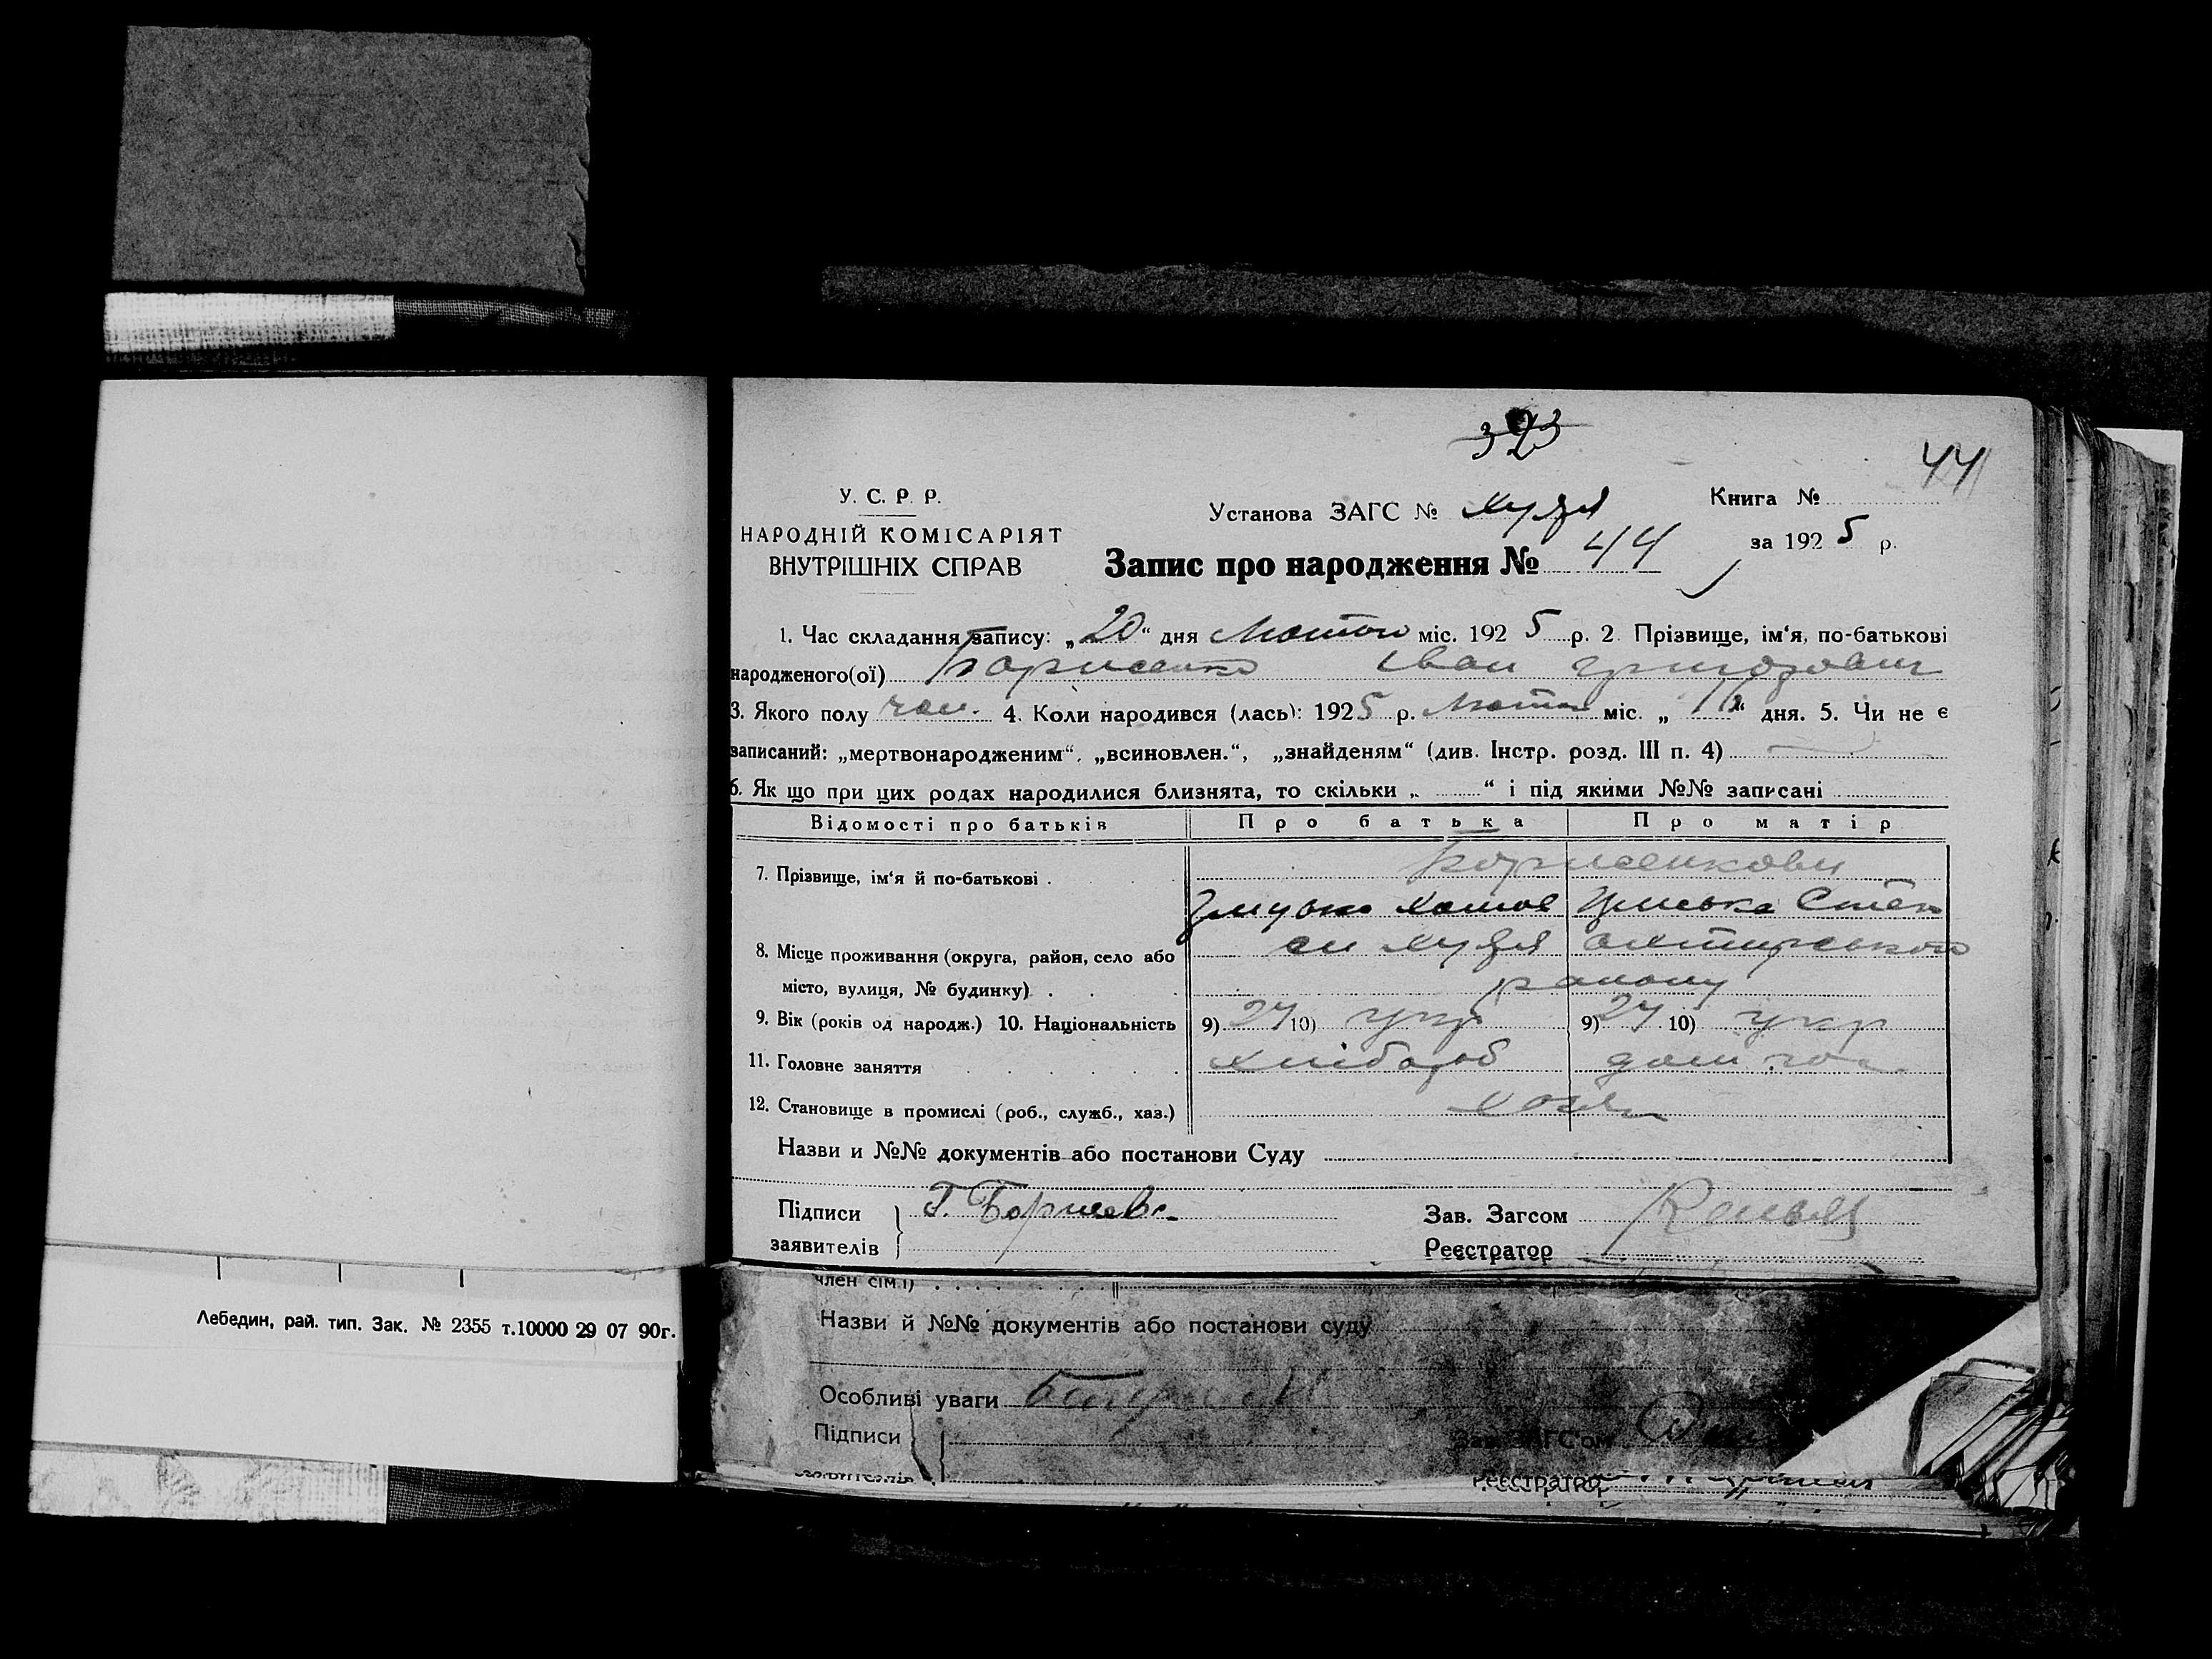 393
44
У. С. Р. Р.
Установа ЗАГС №
Книга №
НАРОДНІЙ КОМІСАРІЯТ
ВНУТРІШНІХ СПРАВ
Запис про народження № 44
за 1925 р.
1. Час складання запису: „20“ дня Лютого міс. 1925 р. 2. Прізвище, ім‘я, по-батькові
народженого(ої) Борисенко Іван Григорович
3. Якого полу чол. 4. Коли народився (лась): 1925 р. Лютого міс. „ “ дня. 5. Чи не є
записаний: „мертвонародженим“, „всиновлен.“, „знайденям“ (див. Інстр. розд. III п. 4)
6. Як що при цих родах народилися близнята, то скільки „ “ і під якими №№ записані
Відомості про батьків Про батька Про матір
7. Прізвище, ім‘я й по-батькові . Борисенкови
8. Місце проживання (округа, район, село або
місто, вулиця, № будинку) . . району
9. Вік (років од народж.) 10. Національність 9) 27 10) укр 9) 27 10) укр
11. Головне заняття хлібороб дом. гос.
12. Становище в промислі (роб., служб., хаз.)
Назви и №№ документів або постанови Суду
Підписи Г. Борисенко Зав. Загсом
заявителів Реєстратор
член сім.ї)
Назви й №№ документів або постанови суду
Особливі уваги
Підписи Зав. ЗАГС'ом
заявителів Реєстратор
Лебедин, рай. тип. Зак. № 2355 т.10000 29 07 90г.